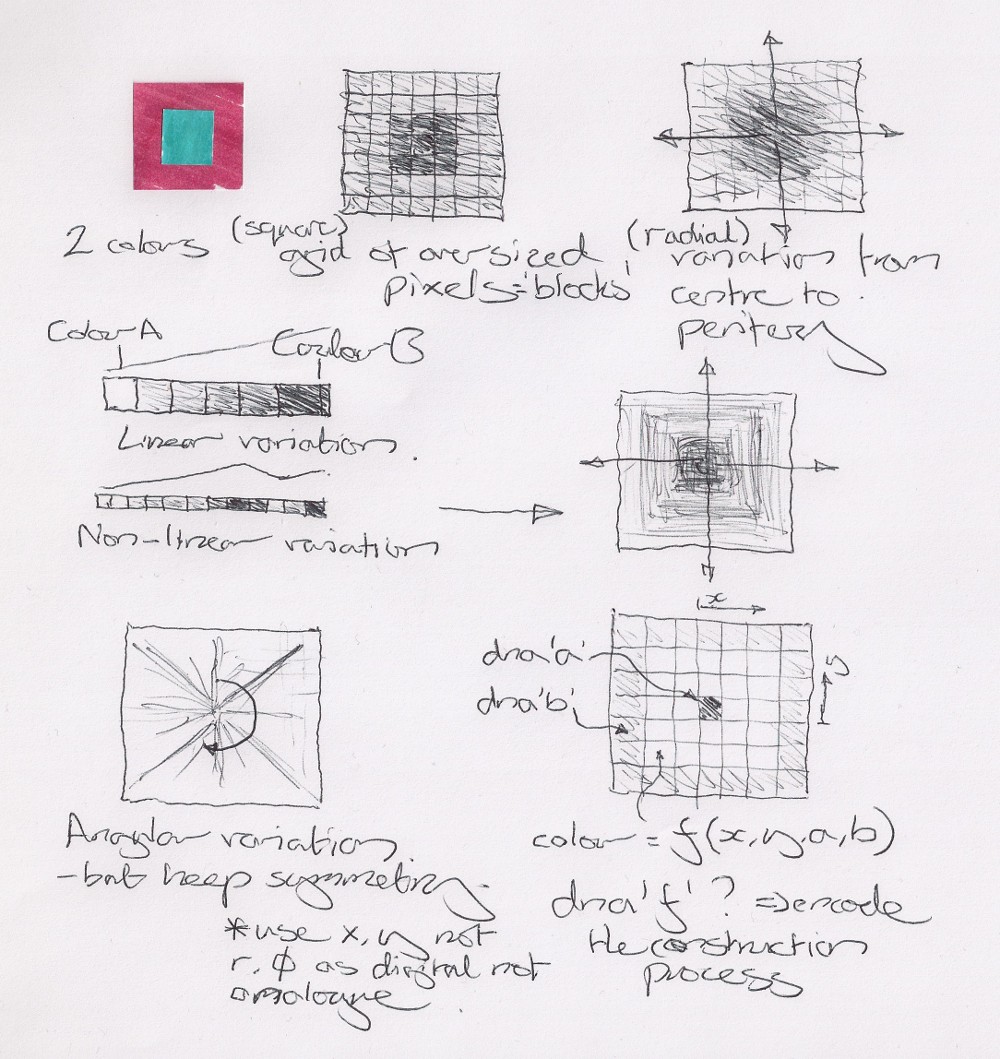 2 colours
(square)
grid of oversized
pixels='blocks'
(radial)
variation from
centre to
perifery
Colour A
Coulour B
Linear variation.
Non-linear variation
x
y
dna'a'
dna'b'
Angular variation.
-but keep symmetry.
*use x, y not
r, ϕ as digital not
analogue
colour = f(x,y,a,b)
dna'f'? => encode
the construction
process